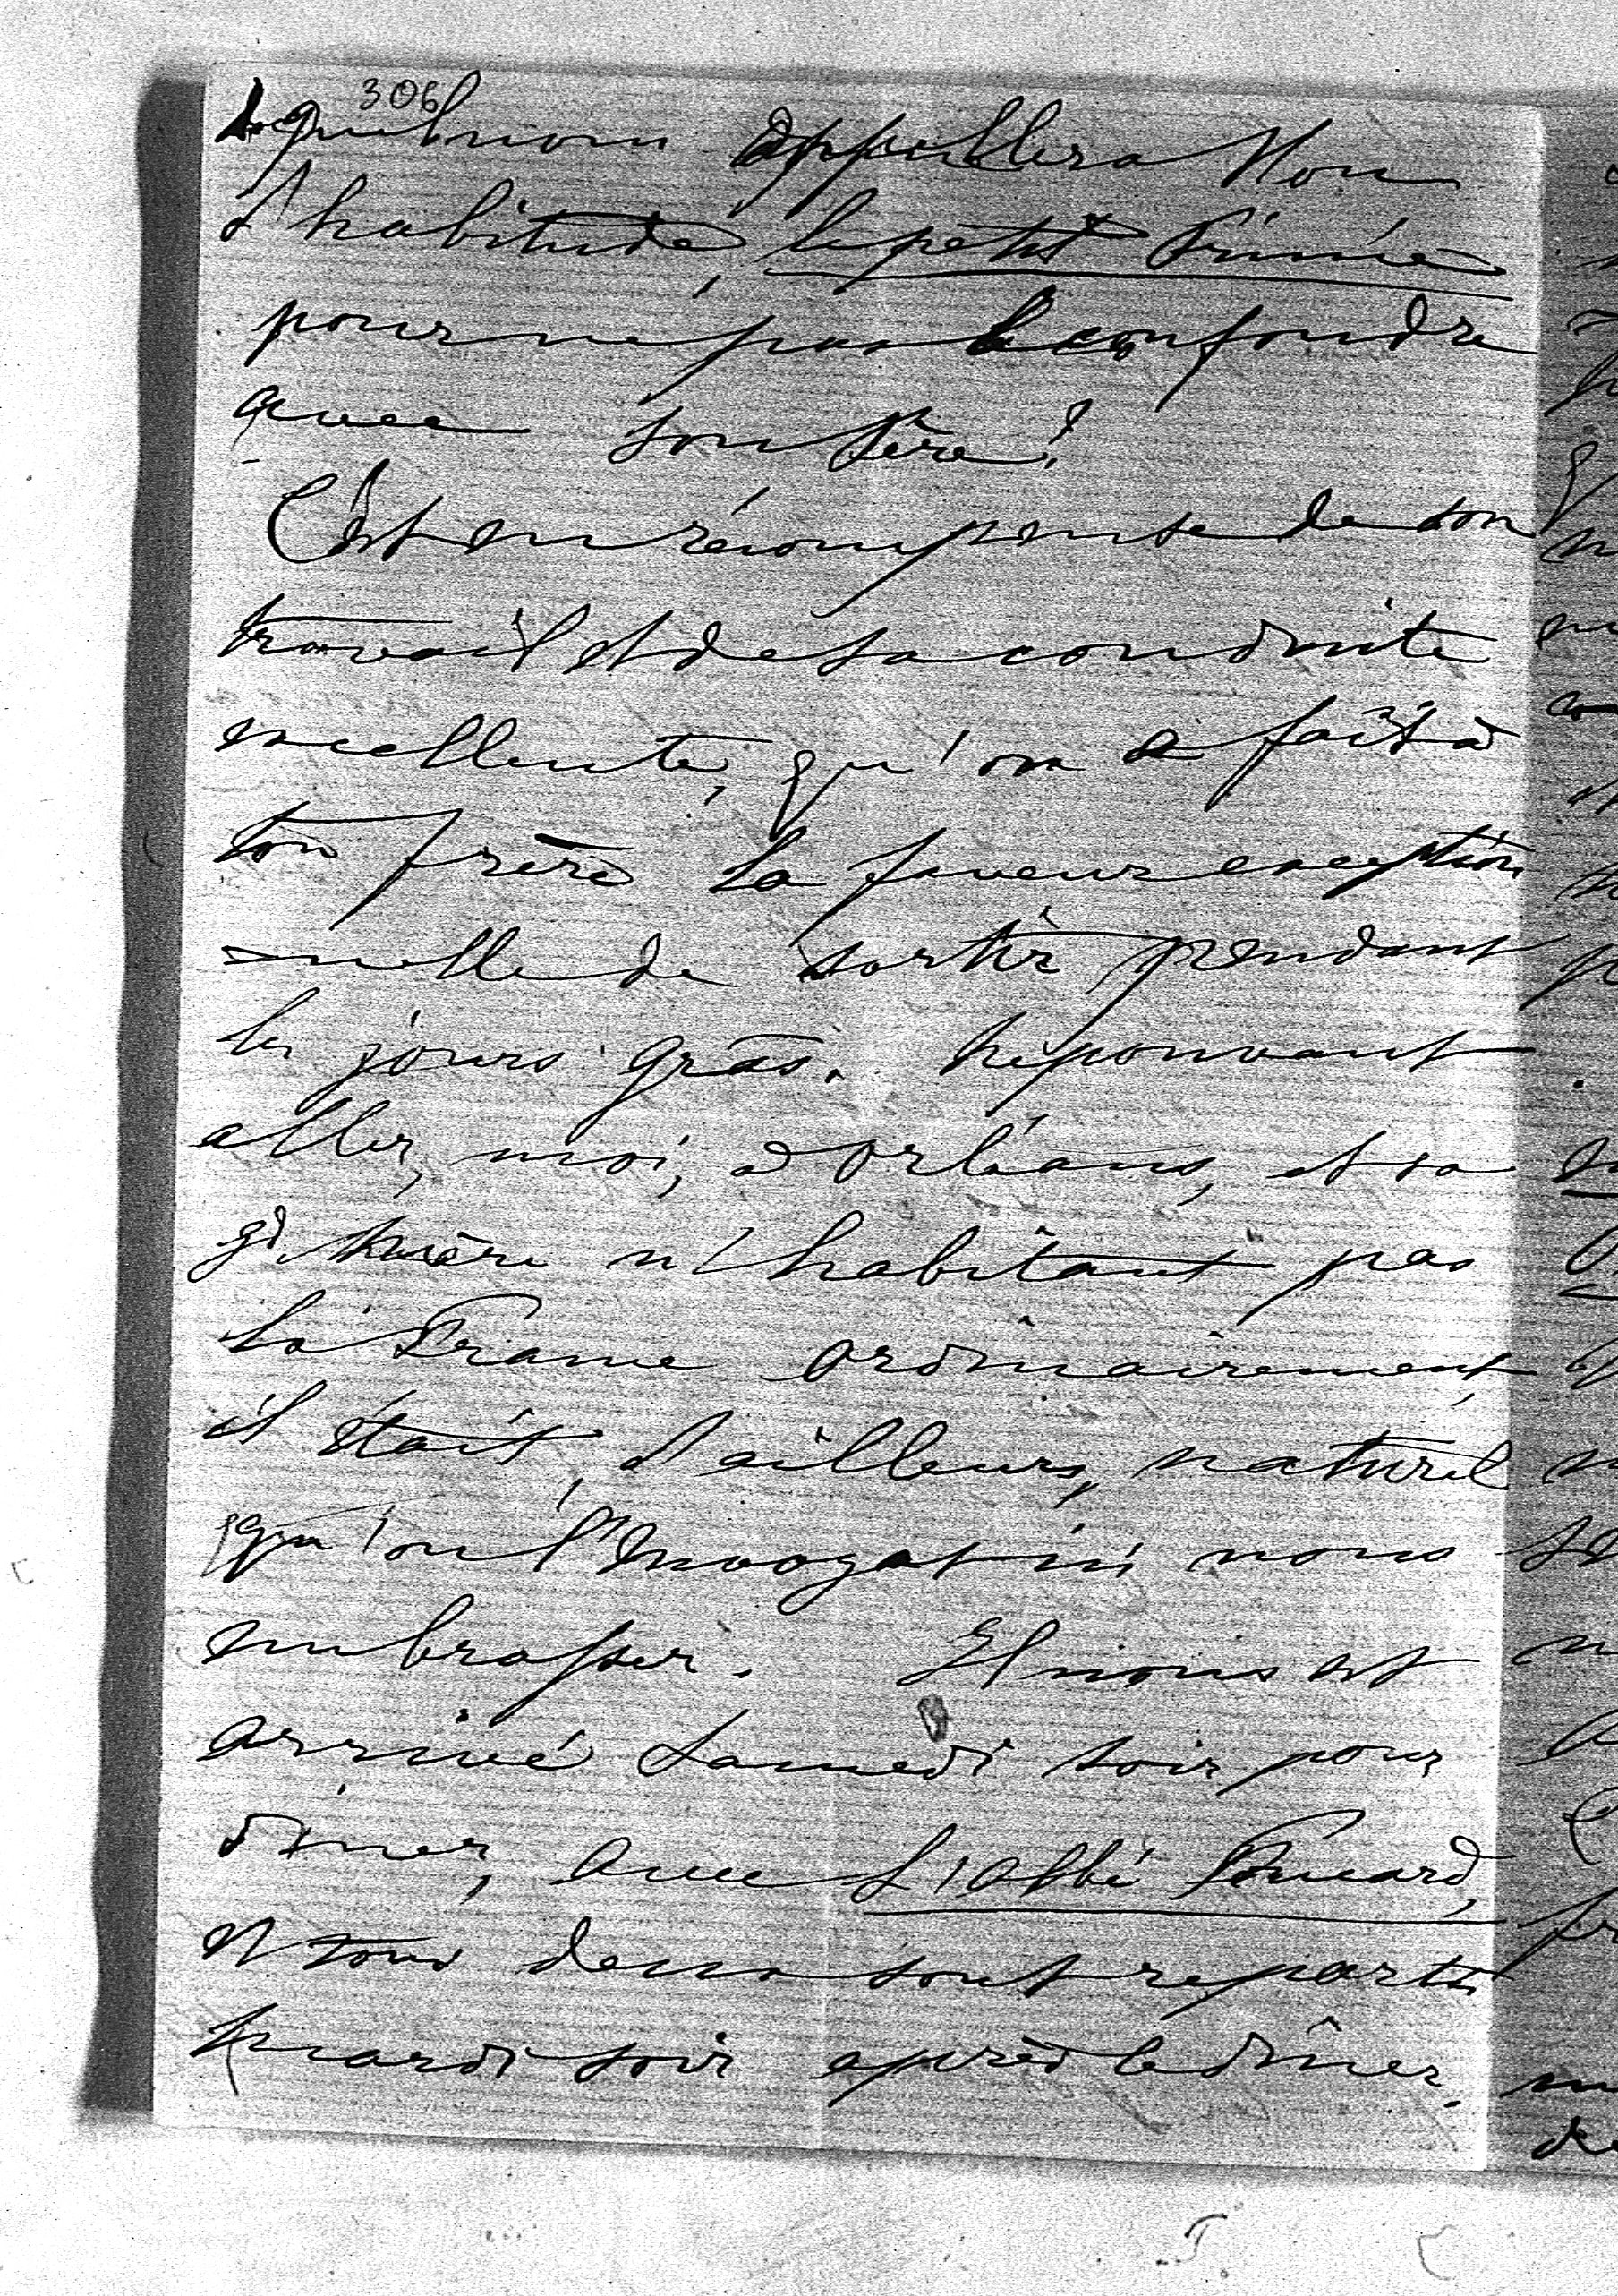 306
quel nom appellera
d'habitude, le petit
pour ne pas le confondre
avec son Père?
C'est en récompense de son
travail et de sa conduite
excellente, qu'on a fait à
ton frère la faveur exception
=nelle de sortir pendant
les jours gras. Ne pouvant
aller, moi, à Orléans, et sa
gd. mère n'habitant pas
la France ordinairement,
il était, d'ailleurs, naturel
qu'on l'envoyat ici nous
embrasser. Il nous est
arrivé Samedi soir pour
diner, avec L'abbé
et tous deux sont repartis
mardi soir après le dîner.